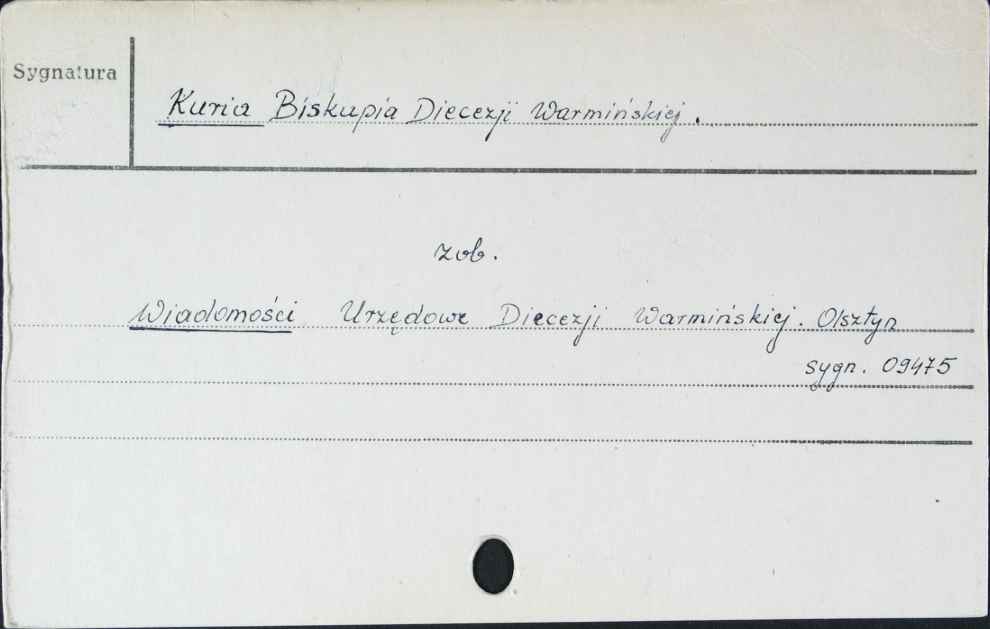 Sygnatura
Kuria Biskupia Diecezji Warmińskiej.
zob.
Wiadomości Urzędowe Diecezji Warmińskiej. Olsztyn
sygn. 09475